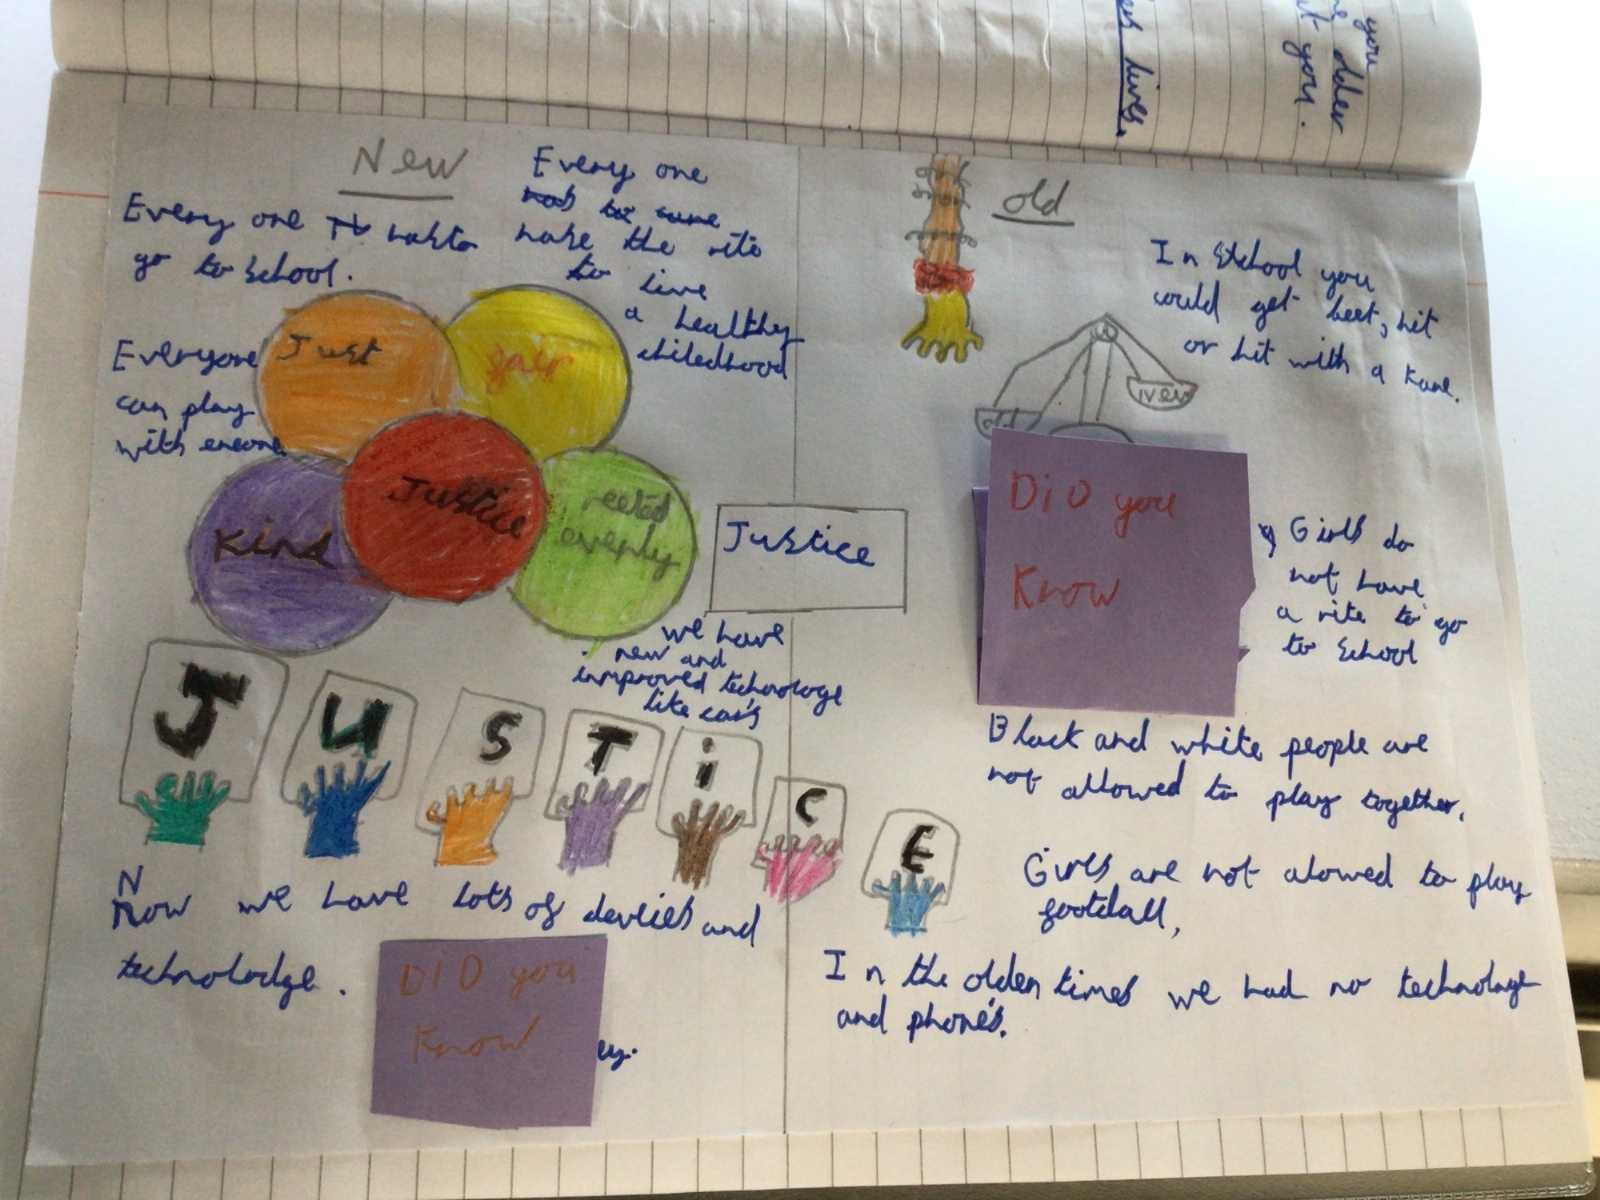 New
Every one has to
go to School.
Every one
have the rite
to live
a healthy
childedhood
Everyone
can play
with
Just
fair
Kind
Justice
reeted
evenly
Justice
we have
new and
improved technologe
like car's
J U S T i C E
Now we have lots of devies and
technolodge.
DiD you
Know
ey.
old
In School you
could get beet, hit
or hit with a kane.
old
DiD you
Know
Girls do
not have
a rite to go
to School
Black and white people are
not allowed to play together.
Girls are not alowed to play
football,
In the olden times we had no technologe
and phone's.
you
older
t you.
lives.